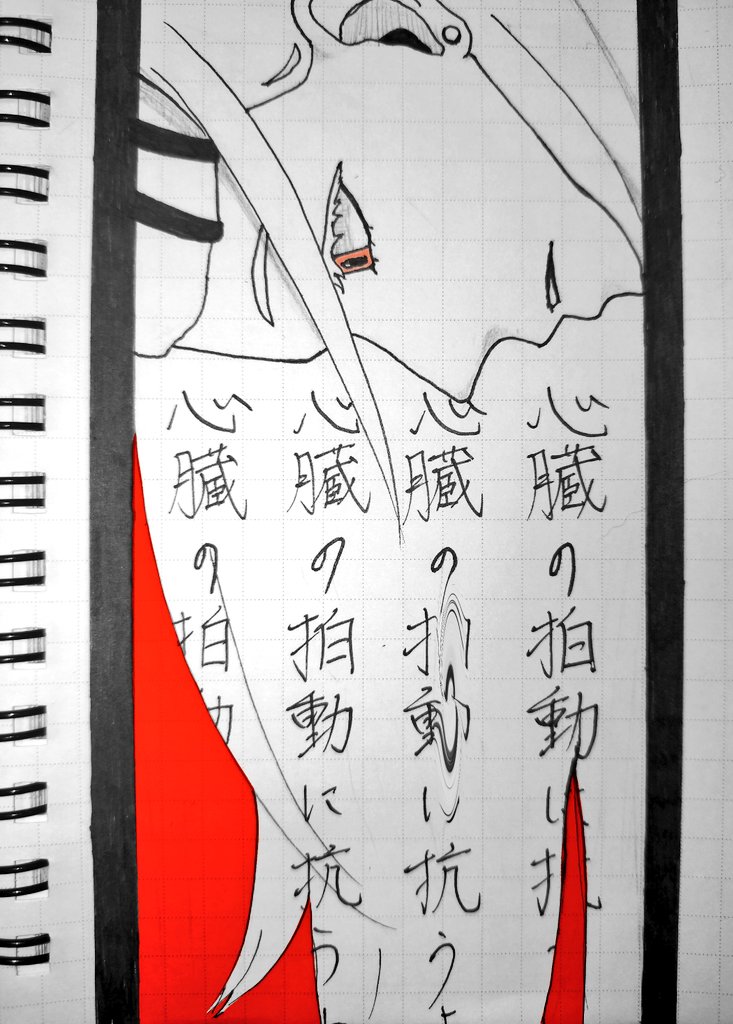 心臓の拍動に抗
心臓の拍動に抗う
心臓の拍動に抗う
心臓の拍動